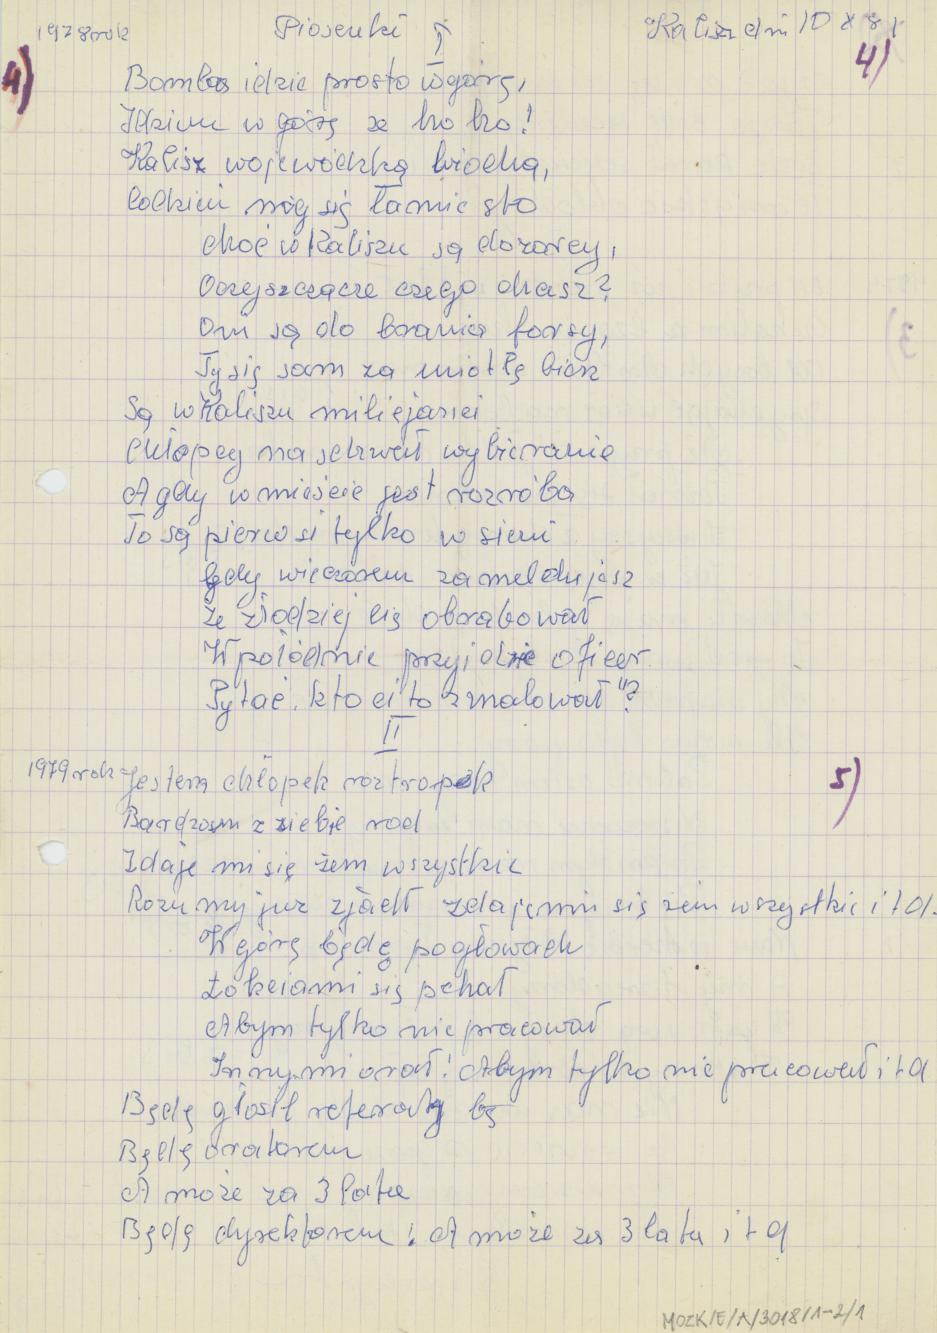 1978 rok Piosenki I Kalisz dni 10 X 81
4) 4)
Bomba idzie prosto w górę,
Idziem w górę że ho ho!
Kalisz wojewódzką wiochą,
Colkiem nóg się łamie sto
choć w Kaliszu są dozorcy,
Oczyszczacze czego chcasz?
Oni są do brania forsy,
Ty się sam za miotłę bierz
Są w Kaliszu milicjanci
Chłopcy na schwał wybieranie
A gdy w mieście jest rozróba
To są pierwsi tylko w sieni
gdy wieczorem zameldujesz
że złodziej cię obrabował
W połódnie przyjdzie oficer
Pytać, kto ci to zmalował"?
II
1979 rok Jestem chłopek roztropek 5)
Bardzom z siebie rad
Zdaje mi się żem wszystkie
Rozumy już zjadł zdaje mi się żem wszystkie i t d.
W górę będę po głowach
Łokciami się pchał
Abym tylko nie pracował
Innymi orał! Abym tylko nie pracował i t d
Będę głosił referaty bę
Będę oratorem
A może za 3 lata
Będę dyrektorem! A może za 3 lata i t d
MOZK/E/A/3018/1-2/1